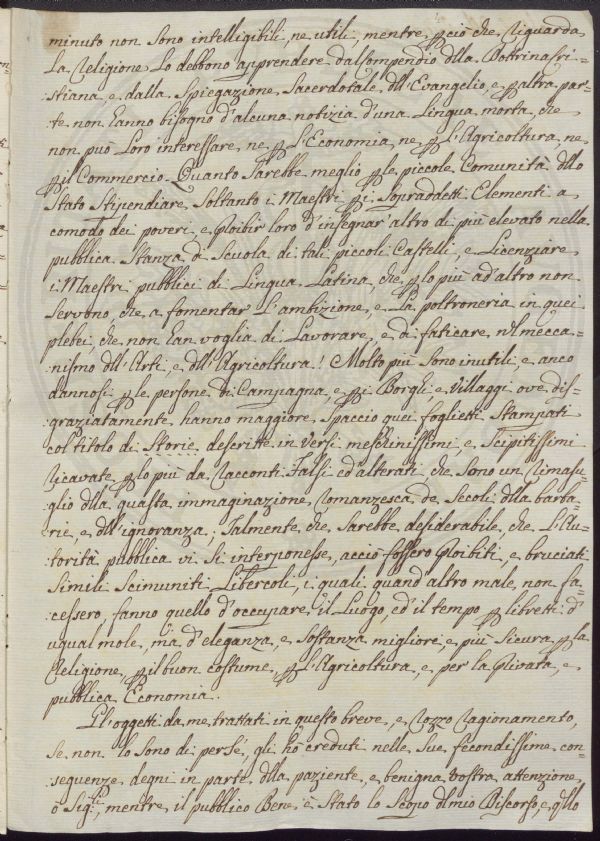 minuto non sono intelligibili, ne utili, mentre ꝑ ciò che riguarda
La Religione Lo debbono apprendere dal Compendio dlla Dottrina Cri=
:stiana, e dalla Spiegazione Sacerdotale dll'Evangelio, e ꝑ altra par=
:te non hanno bisogno d'alcuna notizia d'una Lingua morta, che
non può Loro interessare, ne ꝑ L'Economia, ne ꝑ L'Agricoltura, ne
ꝑ il Commercio. Quanto sarebbe meglio ꝑ le piccole Comunità dllo
Stato Stipendiare Soltanto i Maestri ꝑ i Sopraddetti Elementi a
comodo dei poveri, e ꝓibir loro d'insegnar altro di più elevato nella
pubblica Stanza di Scuola di tali piccoli Castelli, e Licenziare
i Maestri pubblici di Lingua Latina, che ꝑ lo più ad altro non
servono, che a fomentar L'ambizione, e La poltroneria in quei
plebei, che non han voglia di Lavorare, e di faticare nel mecca=
:nismo dll'Arti, e dll'Agricoltura! Molto più sono inutili, e anco
dannosi ꝑ le persone di Campagna, e ꝑ i Borghi, e Villaggi ove dis=
:graziatamente hanno maggiore Spaccio quei foglietti Stampati
col titolo di Storie, descritte in versi meschinissimi, e Scipitissimi
ricavate ꝑ lo più da racconti falsi ed alterati che sono un rimasu=
:glio dlla guasta immaginazione romanzesca de Secoli dlla barba=
:rie, e dll'ignoranza: Talmente che sarebbe desiderabile, che L'Au=
:torità pubblica vi si interponesse, acciò fossero ꝓibiti, e bruciati
Simili Scimuniti Libercoli, i quali quand'altro male non fa=
:cessero, fanno quello d'occupare il Luogo, ed il tempo ꝑ libretti d'
ugual mole, ma d'eleganza, e Sostanza migliore, e più Sicura ꝑ la
Religione, ꝑ il buon costume, ꝑ L'Agricoltura, e per la ꝓivata, e
pubblica Economia.
Gl'oggetti da me trattati in questo breve, e rozzo ragionamento,
Se non lo sono di per sé, gli ho creduti nelle Sue fecondissime con=
:seguenze degni in parte dlla paziente, e benigna vostra attenzione
o Sigri, mentre il pubblico Bene è Stato lo Scopo dl mio Discorso, e qllo